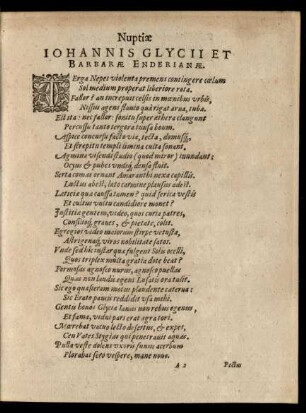 Nuptiæ
IOHANNIS GLYCII ET
BARBARÆ ENDERIANÆ.
TErga Nepes violenta premens contingere cœlum
Sol medium properat liberiore rota.
Fallor? an increpuit celsis in mœnibus urbis,
Nissus agens fluctu quà rigat arva, tuba.
Est ita: nec fallor: sonitu super æthera clangunt
Percussu tanto tergora tensa boum.
Aspice concursu facto via, tecta, domusq́;
Et strepitu templi limina culta sonant,
Agmine visendi studio (quod miror) inundant:
Ocyus & pubes undiq́; densa fluit.
Serta comas ornant Amaranthi nexa capillis.
Luctus abest, lato carmine plausus adest.
Lætitiæ quæ causa tamen? quid spreta vestis
Et cultus vultu candidiore manet?
Justitiâ gentem, video, quos curia patres,
Consilioq́; graves, & pietate, colit.
Egregios video maiorum stirpe vetusta,
Astrigenúq́; viros nobilitate satos.
Vnde sed hic instar quæ fulgent Solis ocelli,
Quos triplex multa gratia dote beat?
Formosas agnosco nurus, agnosco puellas
Quas non laudis egens Lusatis ora tulit.
Sic ego quærebam molus plaudente caterva:
Sic Erato paucis reddidit usa mihi.
Gentis honos Glycia lautis non rebus egenus,
Et fama, vidui pars erat agra tori.
Mœrebat vacuo lecto desertus, & expes,
Ceu Vates Stygias qui penetravit aquas.
Pulla veste dolens uxoris funus acerbum
Plorabat sero vespere, mane novo.
A 2 Pectus